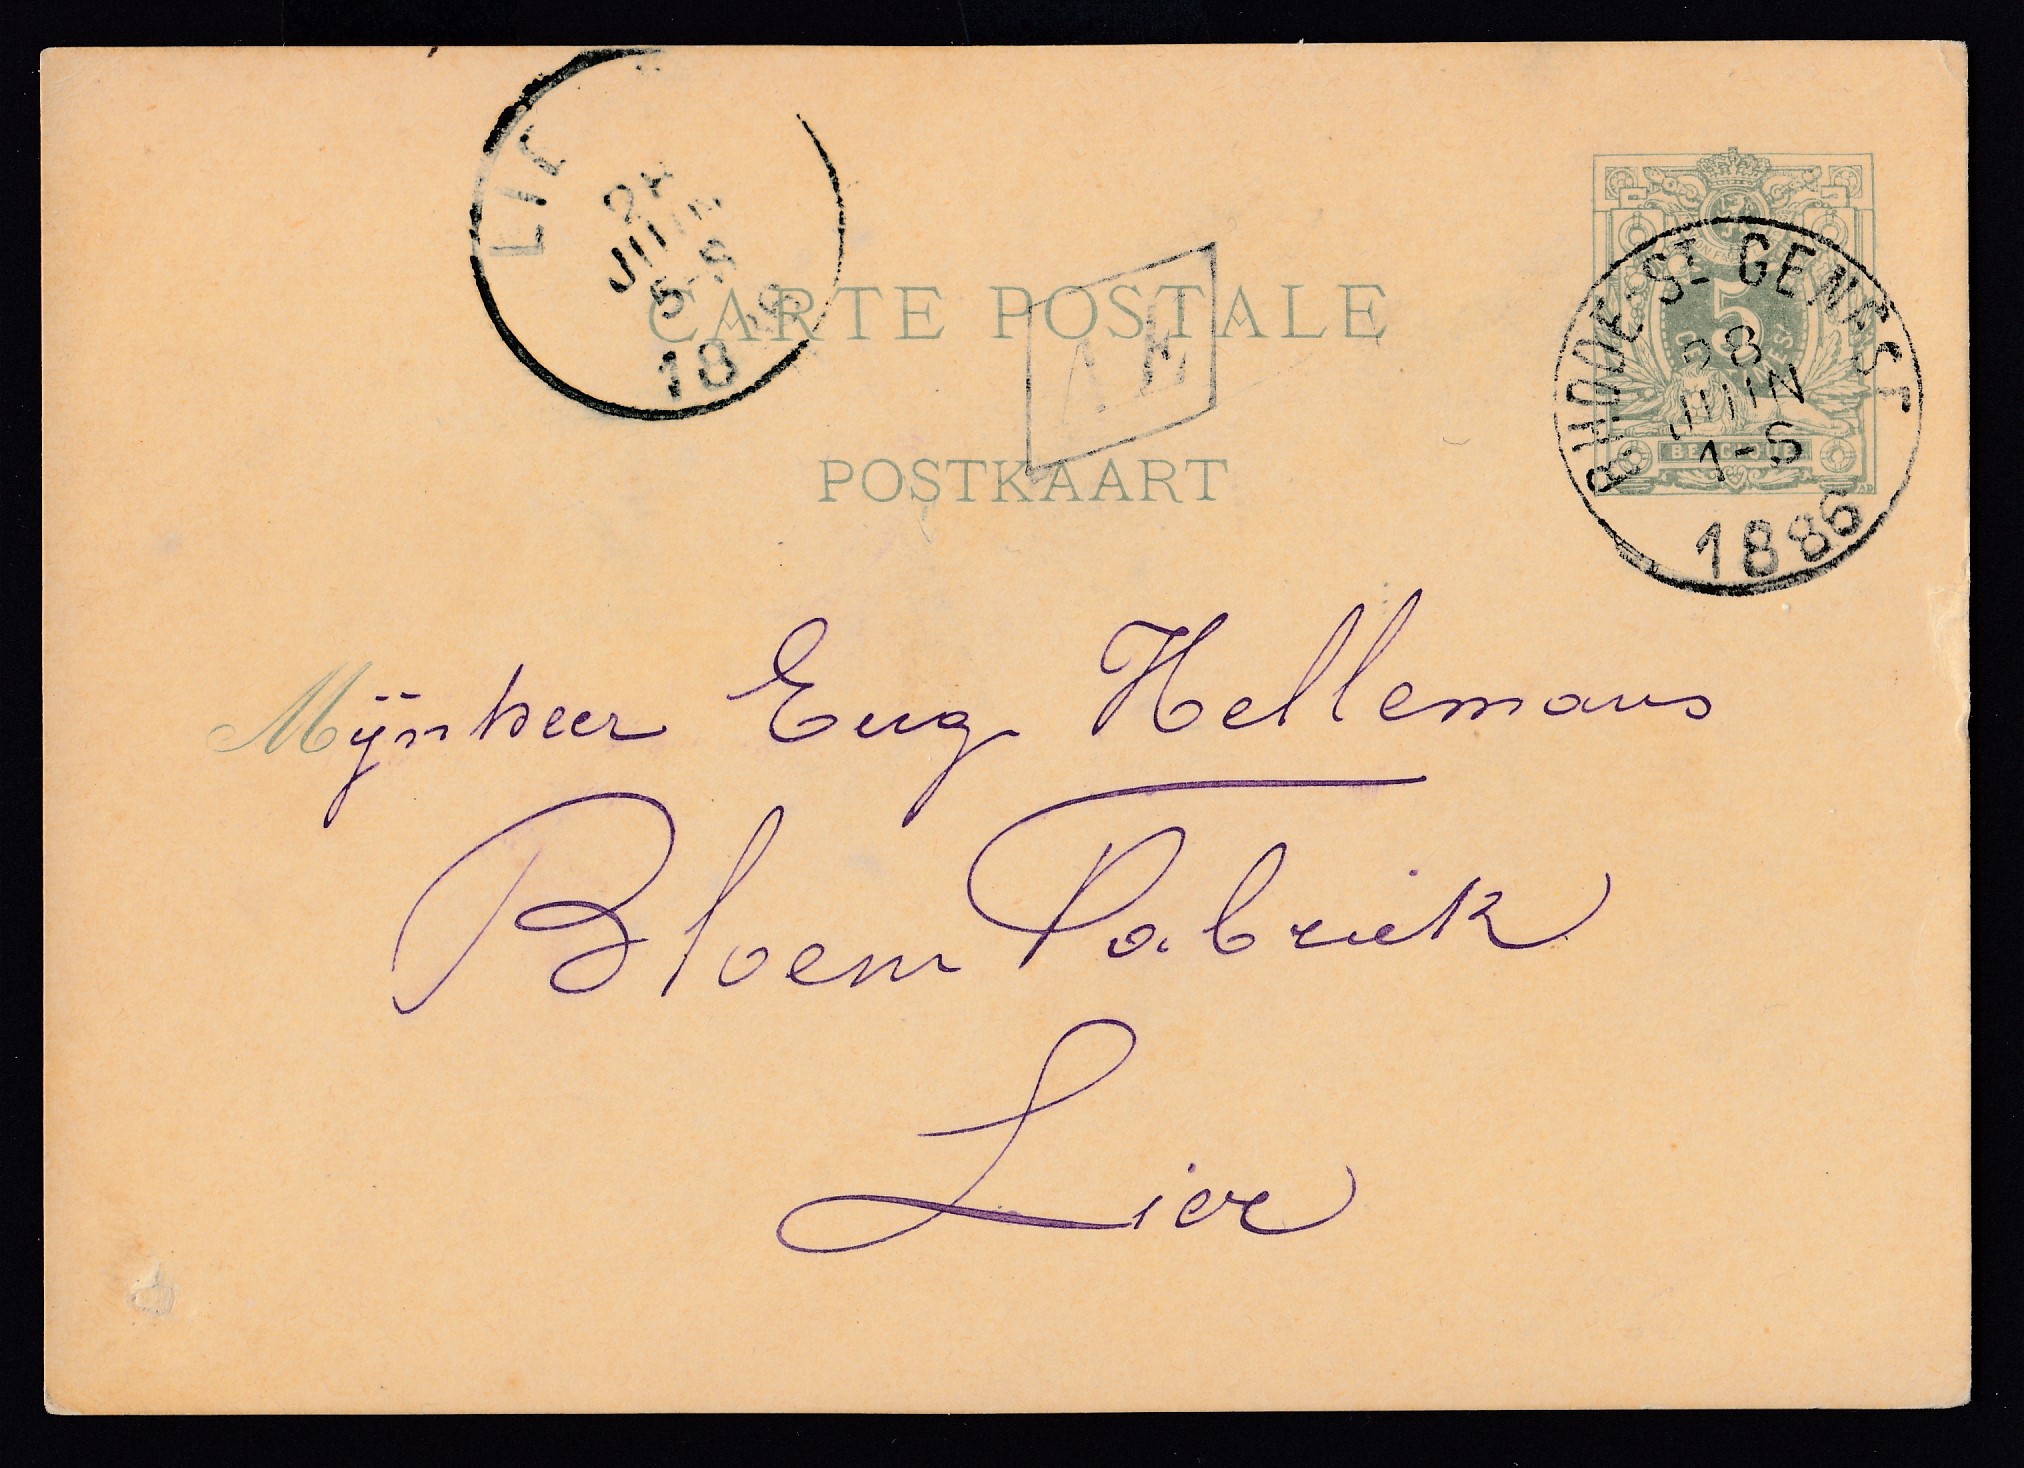 LIE
28
JUIN
5-S
18
CARTE POSTALE
POSTKAART
5
BELGIQUE
RHODE-ST-GENESE
28
JUIN
1-S
1886
Mijnheer Eug. Hellemans
Bloem Fabriek
Lier